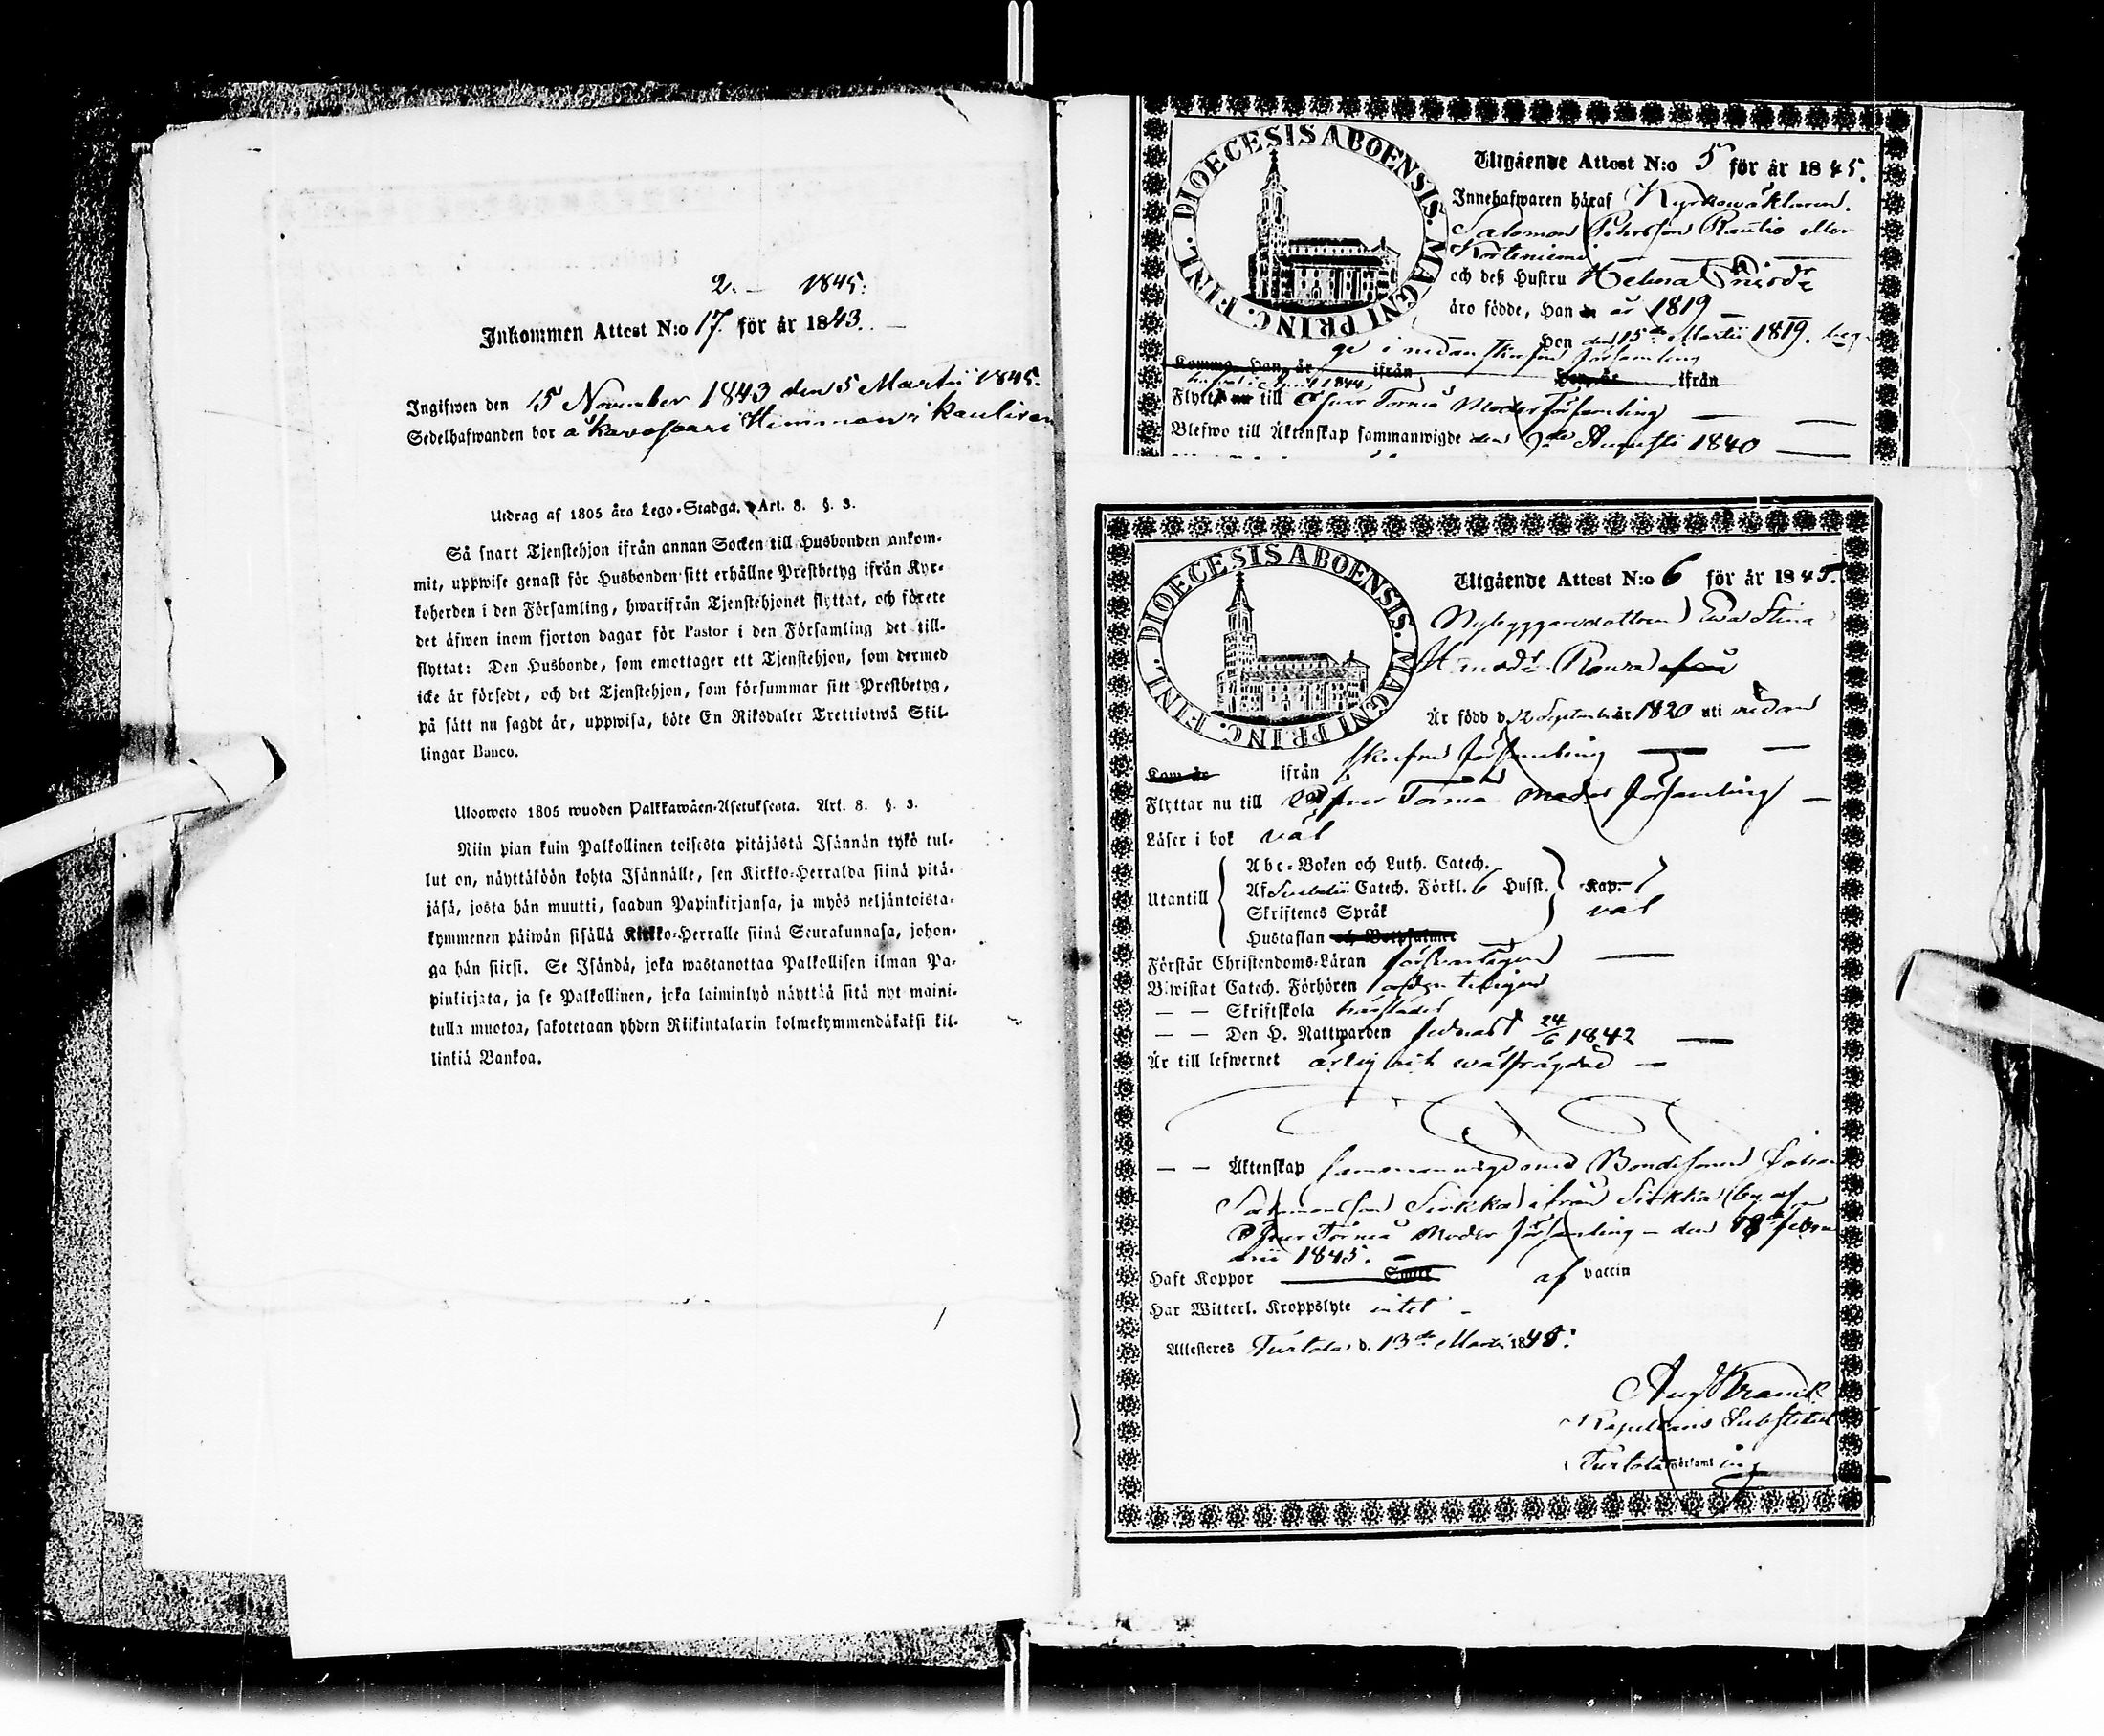 2. — 1845.
Inkommen Attest N:o 17. för år 1843. —
Ingifwen den 15 November 1843 den 5 Martii 1845.
Sedelhafwanden bor å Hemman i
Utdrag af 1805 års Lego-Stadga. Art. 8. §. 3.
Så snart Tjenstehjon ifrån annan Socken till Husbonden ankom-
mit, uppwise genast för Husbonden sitt erhållne Prestbetyg ifrån Kyr-
koherden i den Församling, hwarifrån Tjenstehjonet flyttat, och förete
det äfwen inom fjorton dagar för Pastor i den Församling det till-
flyttat: Den Husbonde, som emottager ett Tjenstehjon, som dermed
icke är försedt, och det Tjenstehjon, som försummar sitt Prestbetyg,
på sätt nu sagdt är, uppwisa, böte En Riksdaler Trettiotwå Skil-
lingar Banco.
Uloosweto 1805 wuoden Palkkawäen-Asetuksesta. Art. 8. §. 3.
Niin pian kuin Palkollinen toisesta pitäjästä Isännän tykö tul-
lut on, näyttäköön kohta Isännälle, sen Kirkko-Herralda siinä pitä-
jäsä, josta hän muutti, saadun Papinkirjansa, ja myös neljäntoista-
kymmenen päiwän sisällä Kirkko-Herralle siinä Seurakunnasa, johon-
ga hän siirsi. Se Isändä, joka wastanottaa Palkollisen ilman Pa-
pinkirjata, ja se Palkollinen, joka laiminlyö näyttää sitä nyt maini-
tulla muotoa, sakotetaan yhden Riikintalarin kolmekymmendäkaksi kil-
linkiä Bankoa.
DIOECESIS ABOENSIS. MAGNI PRINC. FINL.
Utgående Attest N:o 5 för år 1845.
Innehafwaren häraf Kyrkowäktaren
Salomon Pehrsson Rautio eller
Korteniemi
och deß Hustru Helena
äro födde, Han år 1819 —
Hon den 15de Martii 1819.
i nedanskrefne Församling
Komma, Han år ifrån Hon, år ifrån
Flytta nu till Öfver Torneå Moderförsamling —
Blefwo till Äktenskap sammanwigde den 9de Augusti 1840 —
DIOECESIS ABOENSIS. MAGNI PRINC. FINL.
Utgående Attest N:o 6 för år 1845.
Nybyggaredottren Ewa Stina
Rowa
Är född d. 2 September år 1820 uti nedan
Kom år ifrån skrefne Församling — —
Flyttar nu till Öfver Torneå Moder församling —
Läser i bok väl
Utantill
Abc-Boken och Luth. Catech.
Af Svebelii Catech. Förkl. 6 Hufst. Kap.
Skriftenes Språk väl
Hustaflan och Botpsalmer
Förstår Christendoms-Läran försvarligen —
Bewistat Catech. Förhören ordenteligen
— — Skriftskola
— — Den H. Nattwarden sednast 24/6 1842 —
Är till lefwernet ärlig och wälfrägdad —
— — Äktenskap sammanwigd med Bondesonen Johan
Salomonsson Sirkka ifrån Sirkka by af
Öfver Torneå Moder församling — den 18de Febru
arii 1845. —
Haft Koppor Smitt af vaccin
Har Witterl. Kroppslyte intet —
Attesteres Turtola d. 13de Martii 1845.
Aug
Kapellans Substitut
Turtola församling